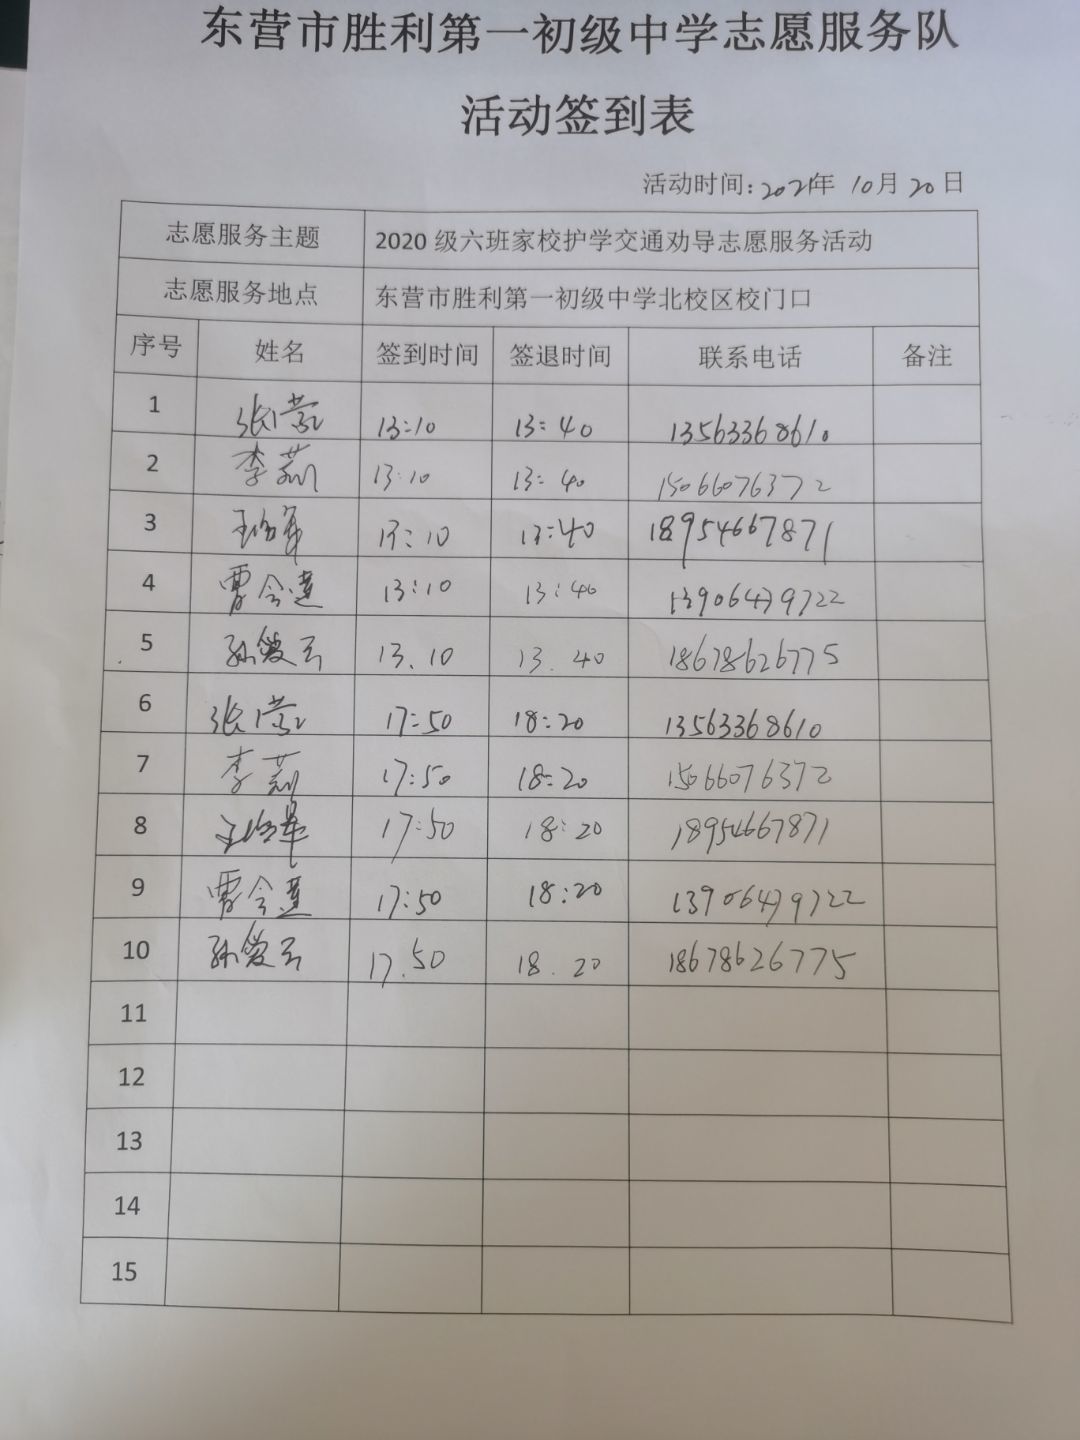 东营市胜利第一初级中学志愿服务队
活动签到表
活动时间:2021年 10月 20日
志愿服务主题 2020级六班家校护学交通劝导志愿服务活动
志愿服务地点 东营市胜利第一初级中学北校区校门口
序号 姓名 签到时间 签退时间 联系电话 备注
1 张 13:10 13:40 13563368610
2 李莉 13:10 13:40 15066076372
3 王 13:10 13:40 18954667871
4 13:10 13:40 13906479722
5 孙 13.10 13.40 18678626775
6 张 17:50 18:20 13563368610
7 李莉 17:50 18:20 15066076372
8 王 17:50 18:20 18954667871
9 17:50 18:20 13906479722
10 孙 17.50 18.20 18678626775
11
12
13
14
15